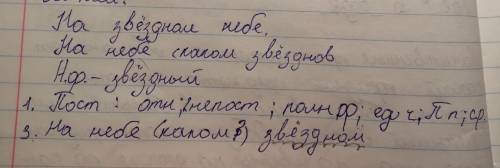 На звёздном небе,
На небе каком звёзднов
Н.ф. - звёздный
1. Пост : отн ; непост ; полн ф ; ед ч ; П п ; ср.
3. На небе (каком?) звёздном